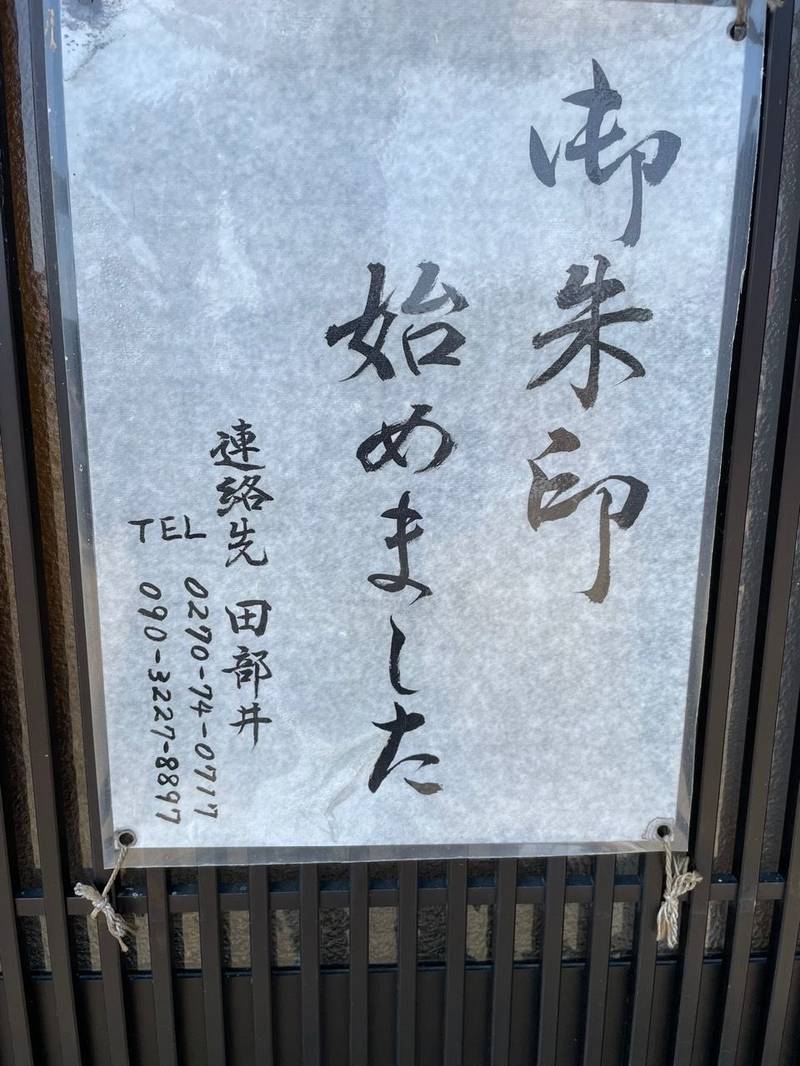 御朱印
始めました
連絡先 田部井
TEL 0270-74-0717
090-3227-8897